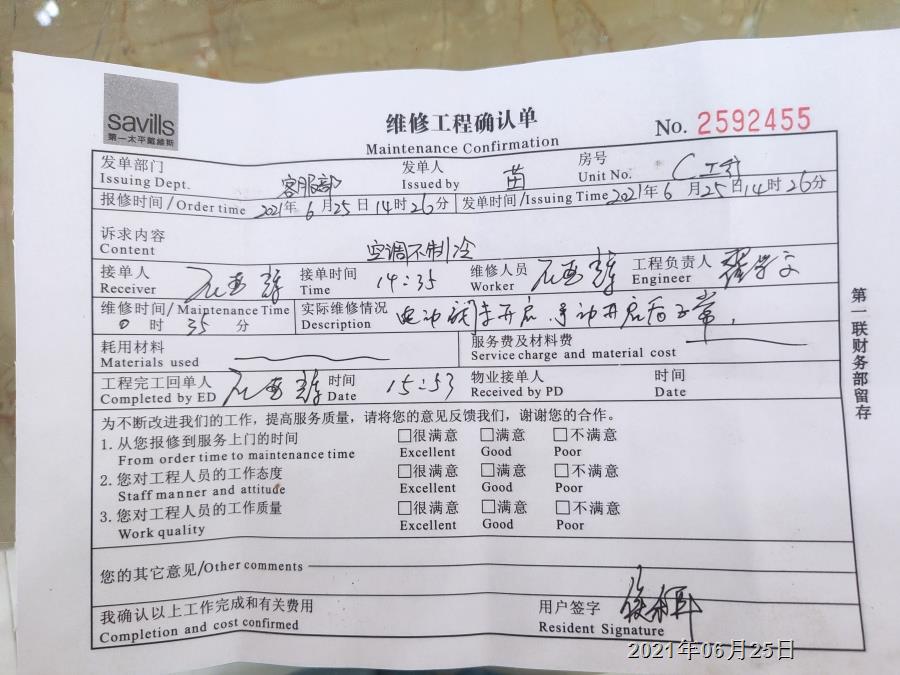 savills
第一太平戴維斯
维修工程确认单
Maintenance Confirmation
No. 2592455
发单部门 客服部 发单人 苗 房号 C
Issuing Dept. Issued by Unit No.
报修时间/Order time 2021年6月25日14时26分 发单时间/Issuing Time 2021年6月25日14时26分
诉求内容 空调不制冷
Content
接单人 接单时间 14:35 维修人员 工程负责人
Receiver Time Worker Engineer
维修时间/Maintenance Time 实际维修情况
0时35分 Description 电动阀未开启,手动开启后正常,
耗用材料 服务费及材料费
Materials used Service charge and material cost
工程完工回单人 时间 15:53 物业接单人 时间
Completed by ED Date Received by PD Date
为不断改进我们的工作,提高服务质量,请将您的意见反馈我们,谢谢您的合作。
1.从您报修到服务上门的时间 □很满意 □满意 □不满意
From order time to maintenance time Excellent Good Poor
2.您对工程人员的工作态度 □很满意 □满意 □不满意
Staff manner and attitude Excellent Good Poor
3.您对工程人员的工作质量 □很满意 □满意 □不满意
Work quality Excellent Good Poor
您的其它意见/Other comments
我确认以上工作完成和有关费用 用户签字
Completion and cost confirmed Resident Signature
第一联财务部留存
2021年06月25日